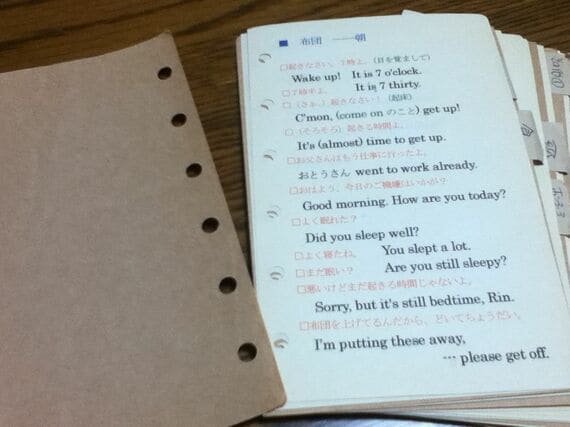 ■ 布団 ――朝
□起きなさい。7時よ。(目を覚まして)
Wake up! It is 7 o'clock.
□7時半よ。 It is 7 thirty.
□(さぁ。)起きなさい!(起床)
C'mon, (come on のこと) get up!
□(そろそろ)起きる時間よ。
It's (almost) time to get up.
□お父さんはもう仕事に行ったよ。
おとうさん went to work already.
□おはよう、今日のご機嫌はいかが?
Good morning. How are you today?
□よく眠れた?
Did you sleep well?
□よく寝たね。 You slept a lot.
□まだ眠い? Are you still sleepy?
□悪いけどまだ起きる時間じゃないよ。
Sorry, but it's still bedtime, Rin.
□布団を上げてるんだから、どいてちょうだい。
I'm putting these away,
… please get off.